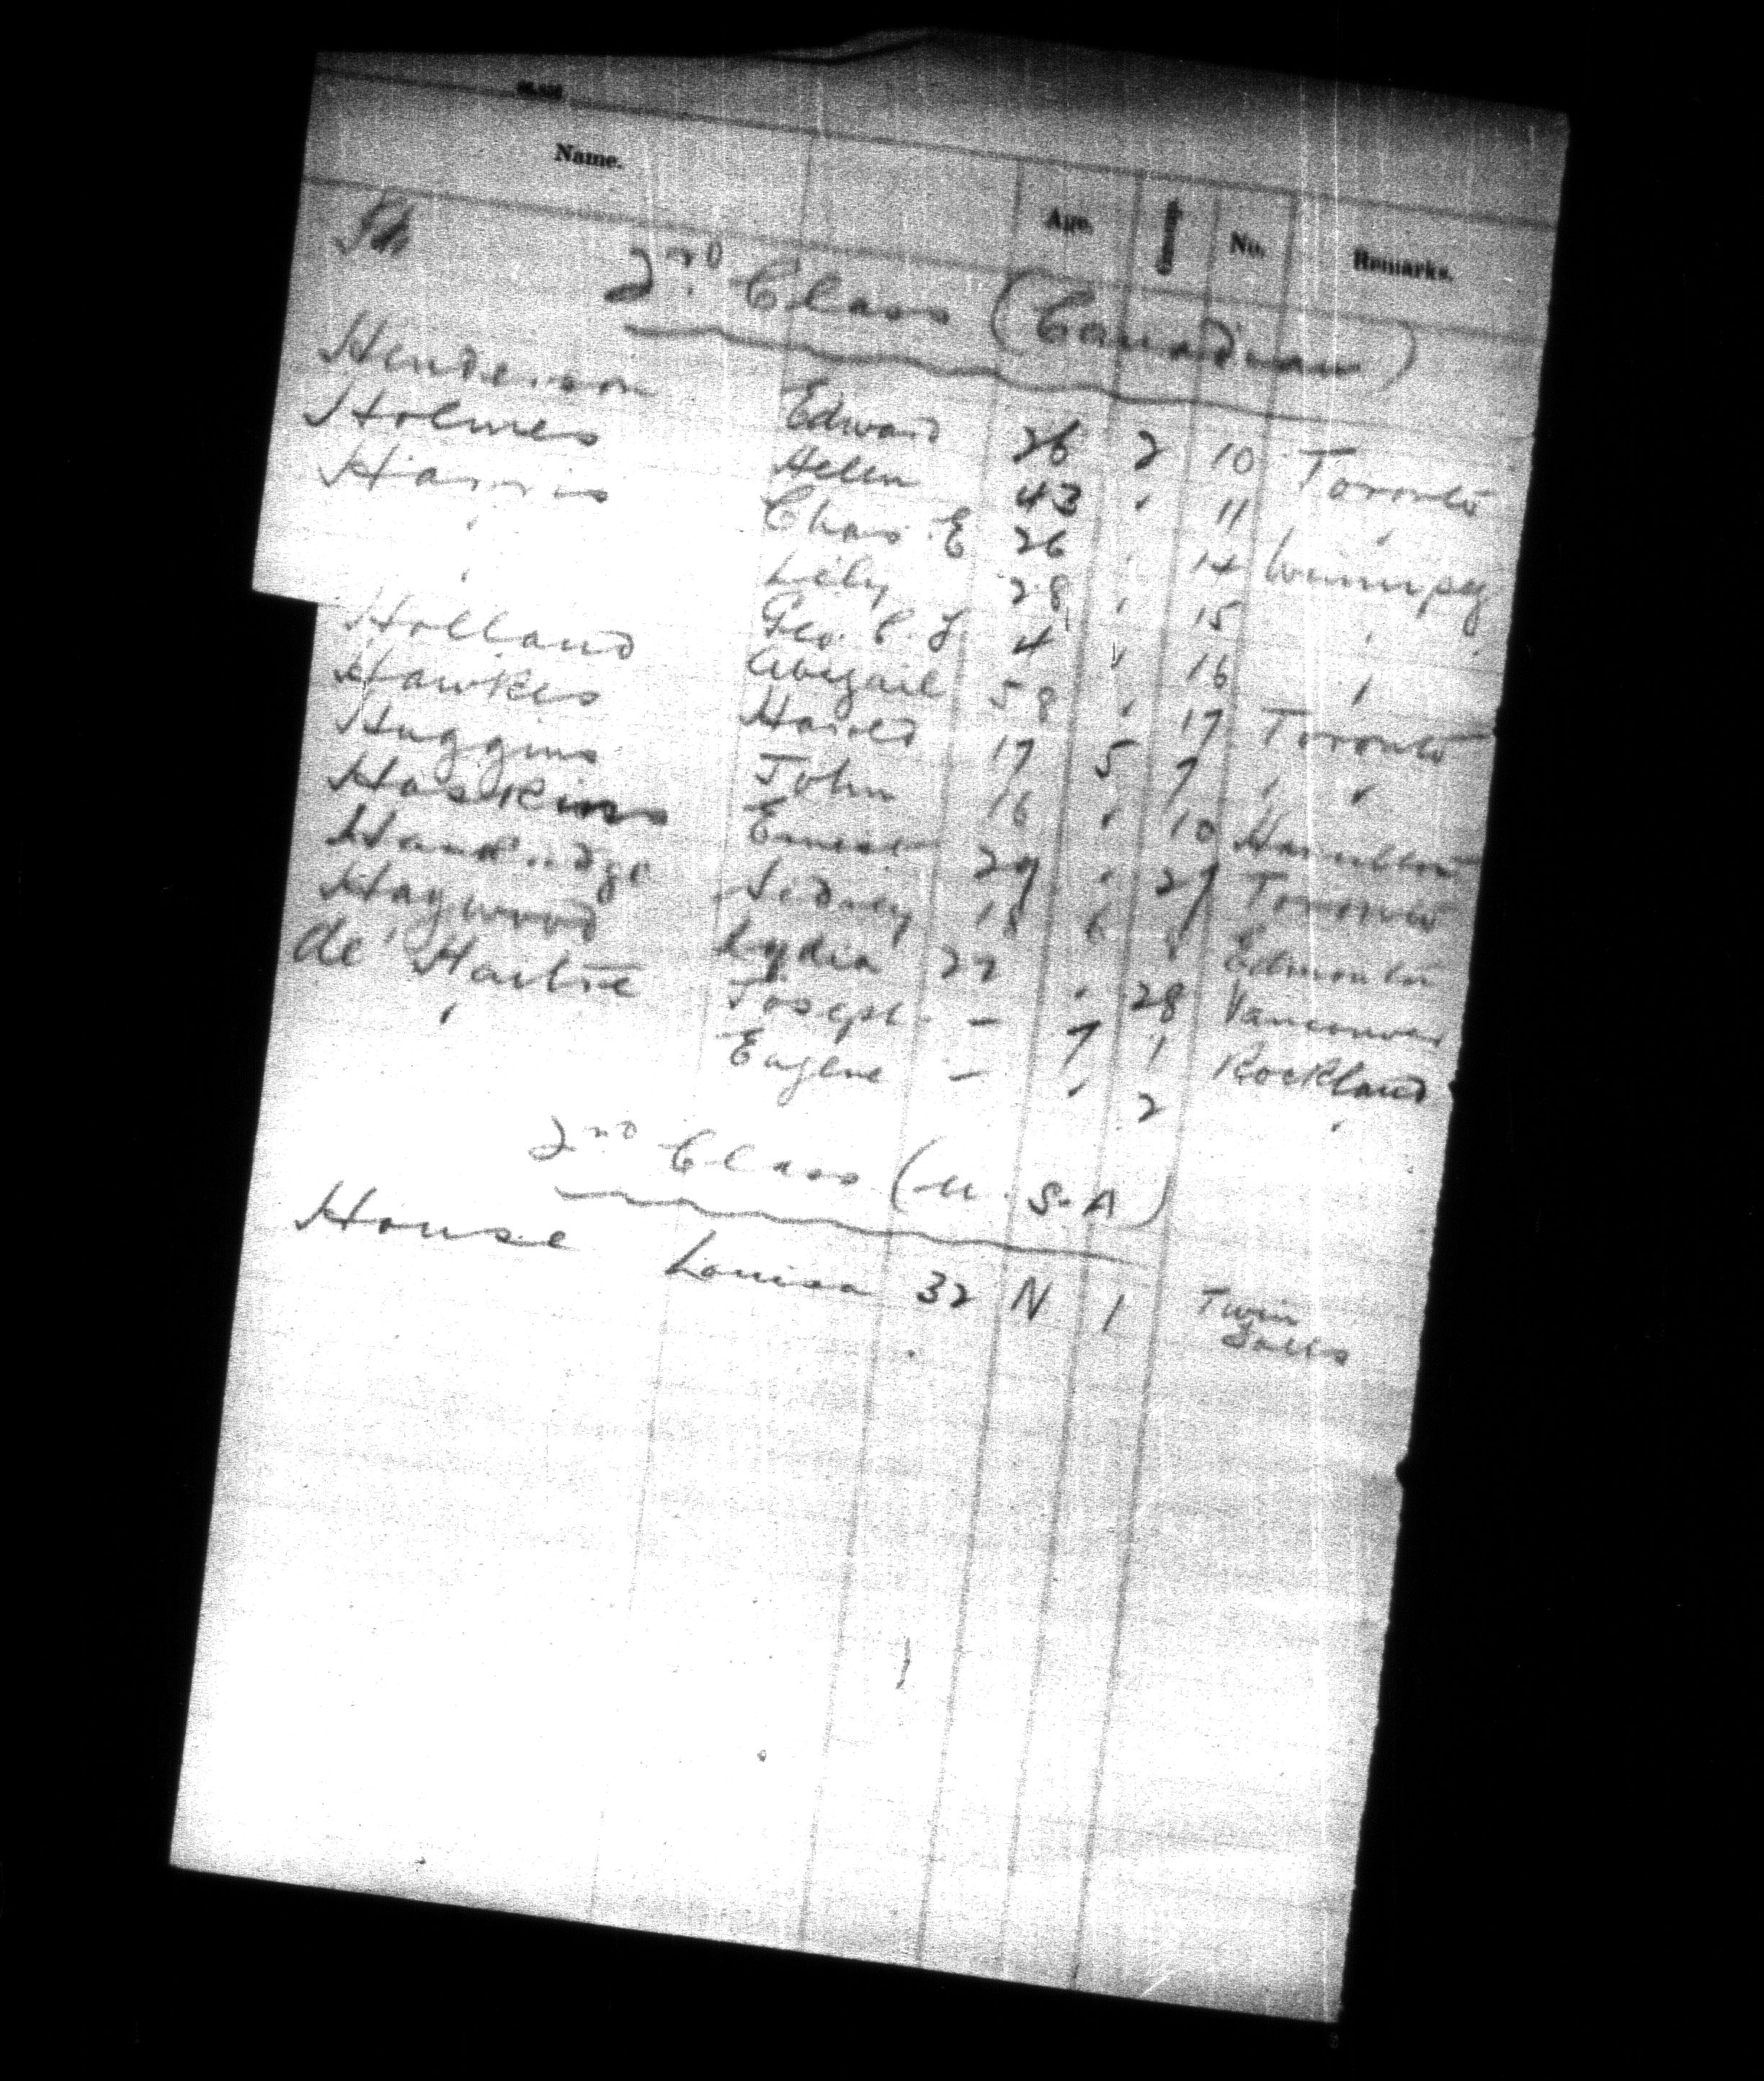 Name. Age. No. Remarks.
2nd Class (Canadian)
Henderson Edward 26 2 10 Toronto
Holmes Helen 43 " 11 "
Harris Chas. E 26 " 14 Winnipeg
" Lily 28 " 15 "
" Geo. C. J 4 " 16 "
Holland Abigail 58 " 17 Toronto
Hawkes Harold 17 5 7 " "
Huggins John 16 " 10 Hamilton
Haskins Ernest 29 " 27 Toronto
Sidney 18 6 8 Edmonton
Haywood Lydia 27 " 28 Vancouver
de Joseph - 7 1 Rockland
" Eugene - " 2 "
2nd Class (U.S.A)
House Louisa 32 N 1 Twin
Falls